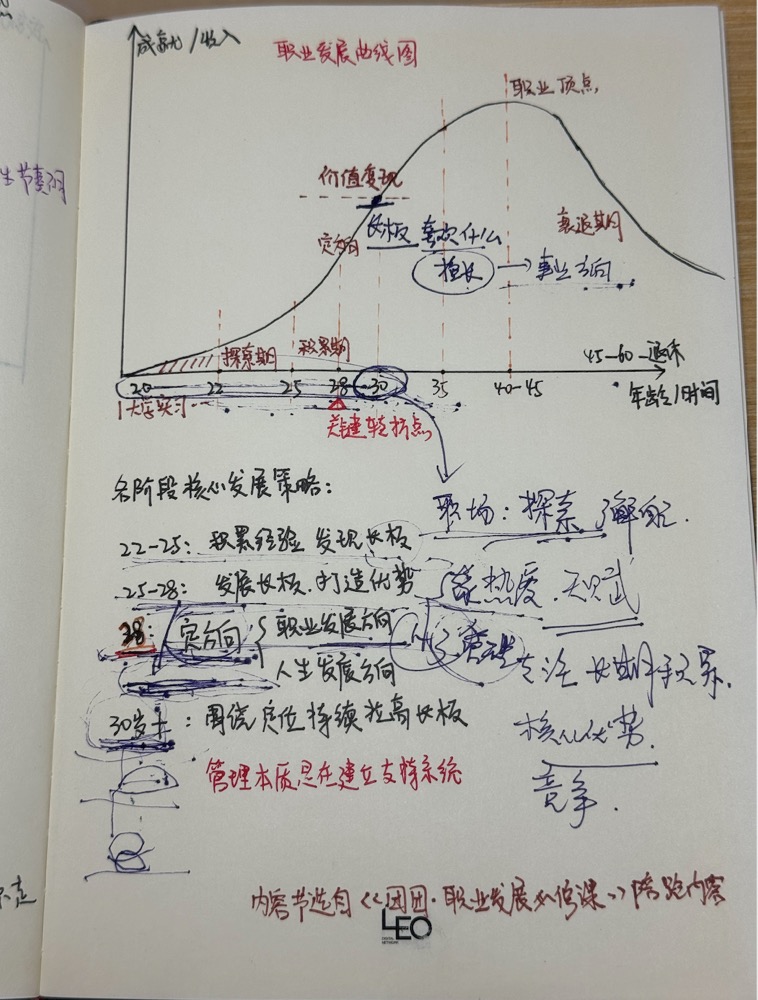 成就/收入
职业发展曲线图
职业顶点
价值变现
定方向
长板 喜欢什么
擅长 → 事业方向
衰退期
探索期
积累期
45-60-退休
20 22 25 28 30 35 40-45
年龄/时间
大学实习
关键转折点
各阶段核心发展策略:
职场: 探索 了解自己.
22-25: 积累经验 发现长板
25-28: 发展长板. 打造优势
热爱. 天赋
28: 定方向 职业发展方向
人生发展方向
专注 长期积累.
30岁+: 围绕定位持续拉高长板
核心优势.
竞争.
管理本质是在建立支持系统
内容节选自《团团·职业发展必修课》陪跑内容
LEO
DIGITAL
NETWORK